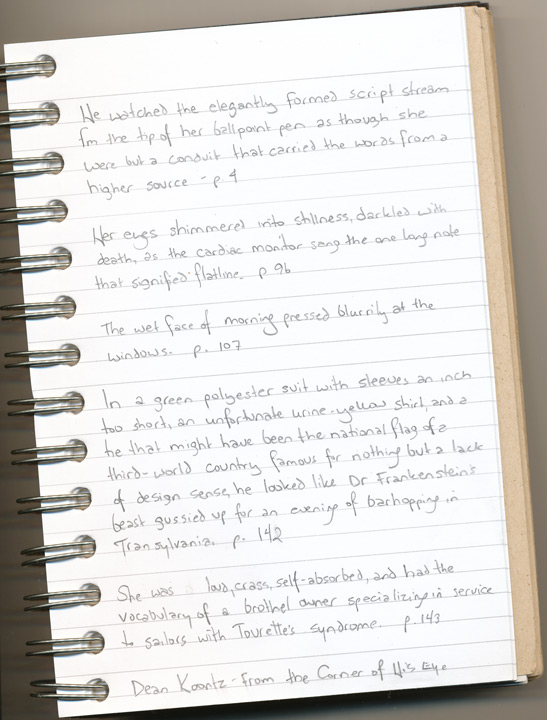 He watched the elegantly formed script stream
fm the tip of her ballpoint pen as though she
were but a conduit that carried the words from a
higher source - p. 4
Her eyes shimmered into stillness, darkled with
death, as the cardiac monitor sang the one long note
that signified flatline. p 96
The wet face of morning pressed blurrily at the
windows. p. 107
In a green polyester suit with sleeves an inch
too short, an unfortunate urine-yellow shirt, and a
tie that might have been the national flag of a
third-world country famous for nothing but a lack
of design sense, he looked like Dr Frankenstein's
beast gussied up for an evening of barhopping in
Transylvania. p. 142
She was loud, crass, self-absorbed, and had the
vocabulary of a brothel owner specializing in service
to sailors with Tourette's syndrome. p. 143
Dean Koontz - From the Corner of His Eye